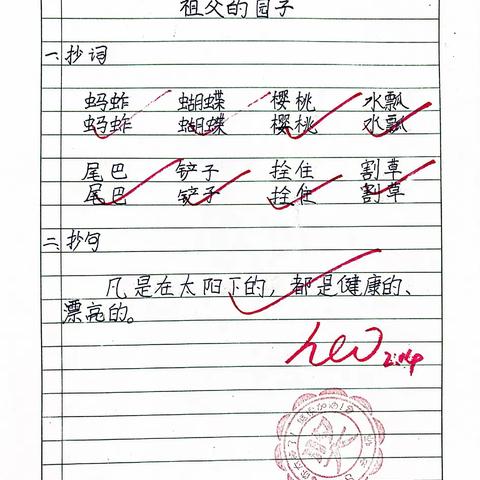 祖父的园子
一、抄词
蚂蚱 蝴蝶 樱桃 水瓢
蚂蚱 蝴蝶 樱桃 水瓢
尾巴 铲子 拴住 割草
尾巴 铲子 拴住 割草
二、抄句
凡是在太阳下的,都是健康的、
漂亮的。